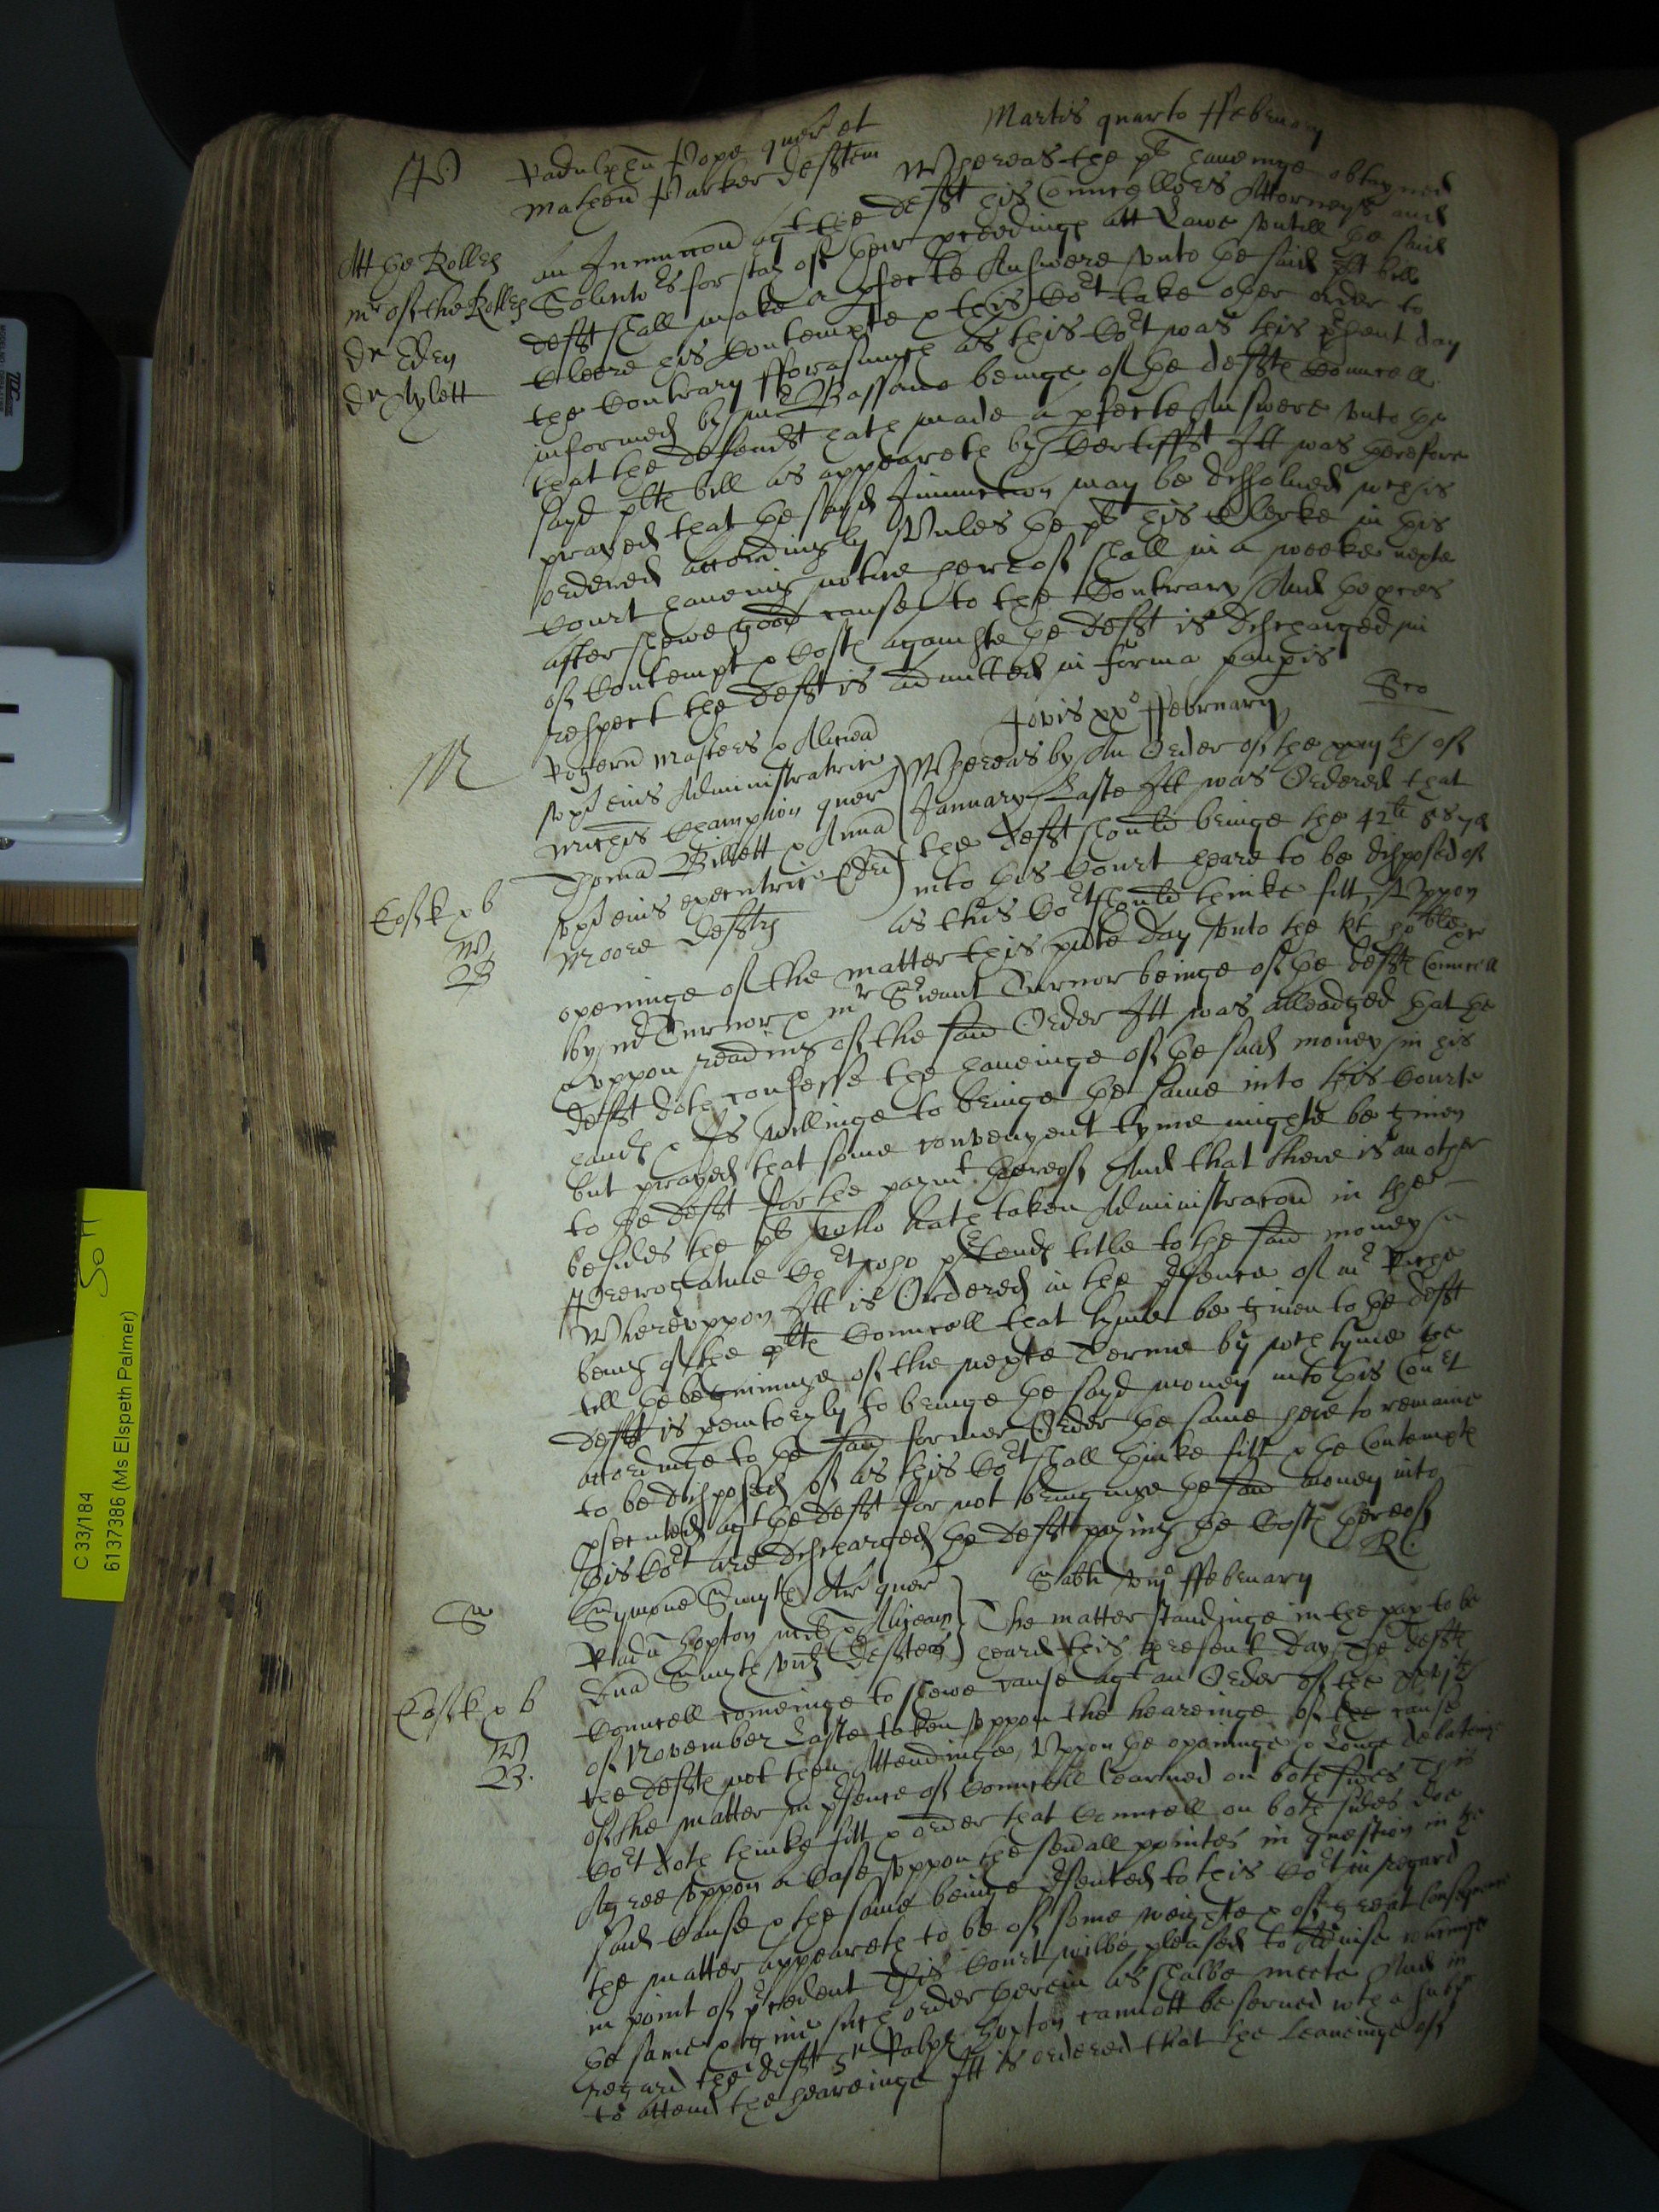 Martis quarto ffebruary
P
Radulphū Pope quer et
Matheū Parker defftem
Whereas the plt haveinge obtayned
an Iniunccon agt the defft his Councellors Attorneys and
Att the Rolles
Mr of the Rolles
Dr Eden
Dr Aylett
Solicitors for stay of their pceedings att Lawe untill the said
defft shall make a pfecte Answere unto the said plt bill
cleere his Contempte & this Cort take other order to
the Contrary fforasmuch as this Cort was this pesent day
informed by mr Bassano beinge of the deffts Councell
that the defendt hath made a pfecte Answere unto the
sayd plts bill as appeareth by Certifft Itt was therefore
prayed that the sayd Iniunction may be dissolved wch is
ordered accordingly Unles the plt his Clerke in this
Court haveing notice hereof shall in a weeke nexte
after shewe good cause to the Contrary And the pces
of Contempt & Costs againste the defft is discharged in
respect the defft is admitted in forma paupis
Jovis xxo ffebruary
M
Rogerū Masters & Aliciā
uxō eius Administratrice
Michis Champion quer
Thomā Billett & Annā
uxō eius executrice
Moore deffts
Whereas by An Order of the of
January Laste Itt was Ordered that
the defft should bringe the 42li
into this Court heare to be disposed of
as this Cort should thinke fitt, Uppon
openinge of the matter this pnte day unto the Rt
by mr Turnor & mr Sieant Turnor beinge of the deffts Councell
& uppon readeing of the said Order Itt was alleadged that the
defft doth confesse the haveinge of the said money in his
hands & is willinge to bringe the same into this Courte
but prayed that some convenyent tyme mighte be given
to the defft for the paymt thereof And that there is an other
besides the plt who hath taken Administracon in the
Prerogative Cort who ptends title to the said money
Whereuppon Itt is Ordered in the psence of mr Riche
being of the plts Councell that tyme be given to the defft
till the beginninge of the nexte Terme by wch tyme the
defft is pemtoryly to bringe the sayd money into this Cort
accordinge to the said former Order the same here to remaine
to be disposed of as this Cort shall thinke fitt & the Contempts
psecuted agt the defft for not bringinge the said money into
this Cort are discharged the defft paying the Costs thereof
R
S
Sabti ffebruary
Symone Smyth Ar quer
Radū Hopton milt & Aliciam
Dnā Smyth vid Defftes
The matter standinge in the pap to be
heard this present day, The deffts
Councell comeinge to shewe cause agt an Order of the
of November Laste taken uppon the heareinge of the cause
the deffts not then Attendinge, Uppon the openinge & Longe debatinge
of the matter in psence of Councell learned on both sides This
Cort doth thinke fitt & order that Councell on both sides doe
Agree uppon a Case uppon the sevall pointes in question in the
said Cause & the same beinge psented to this Cort in regard
the matter appeareth to be of some weighte & of great Consequence
in point of pcedent This Court wilbe pleased to Advise concerninge
the same & to give such order herein as shalbe meete And in
regard the defft Sr Ralph Hopton cannott be served with a
to attend the heareinge Itt is ordered that the leaveinge of
C 33/184
6137386 (Ms Elspeth Palmer)